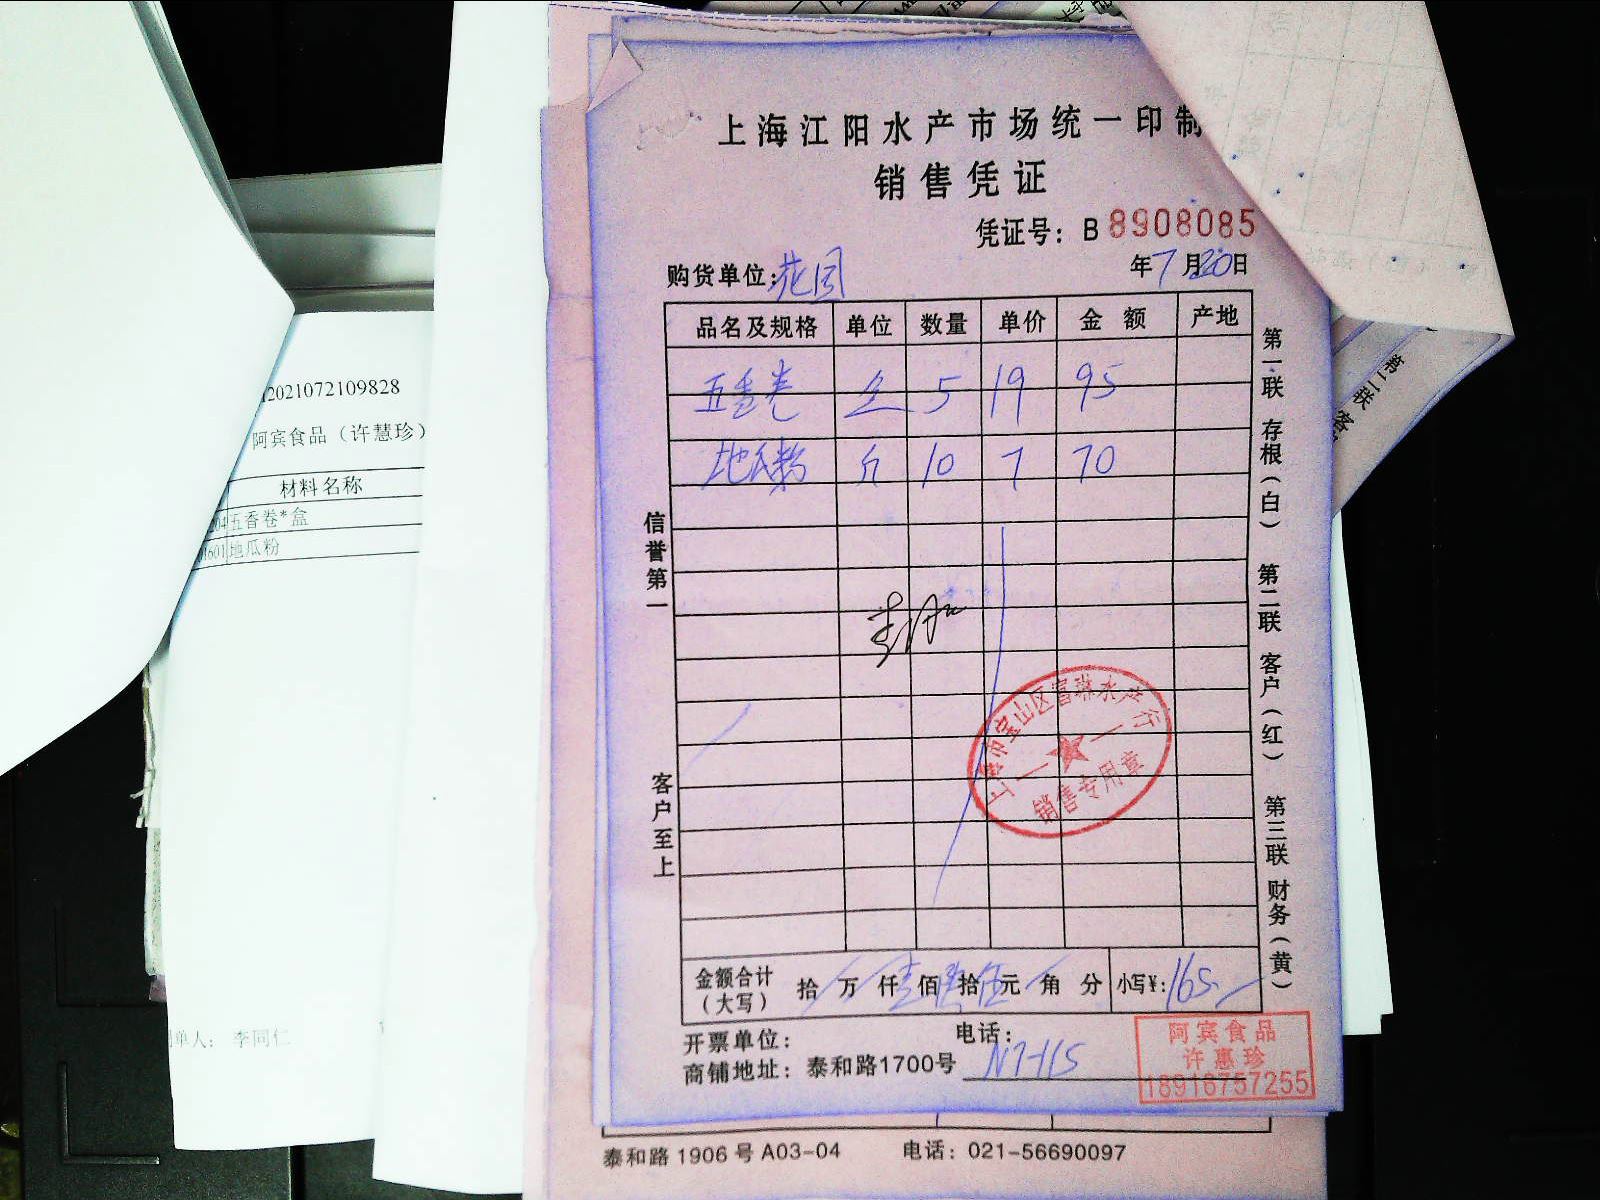 上海江阳水产市场统一印制
销售凭证
凭证号：B 8908085
购货单位：花园
年7月20日
品名及规格 单位 数量 单价 金额 产地
五香卷 5 19 95
地瓜粉 斤 10 7 70
信誉第一
客户至上
第一联 存根（白） 第二联 客户（红） 第三联 财务（黄）
上海市宝山区富琳水产行
销售专用章
金额合计（大写） 拾 万 仟壹佰陆拾伍元 角 分 小写¥：165
开票单位： 电话：
商铺地址：泰和路1700号 N7-115
阿宾食品
许惠珍
18916757255
泰和路 1906 号 A03-04 电话：021-56690097
第二联 客
2021072109828
阿宾食品（许慧珍）
材料名称
五香卷*盒
1601 地瓜粉
单人： 李同仁